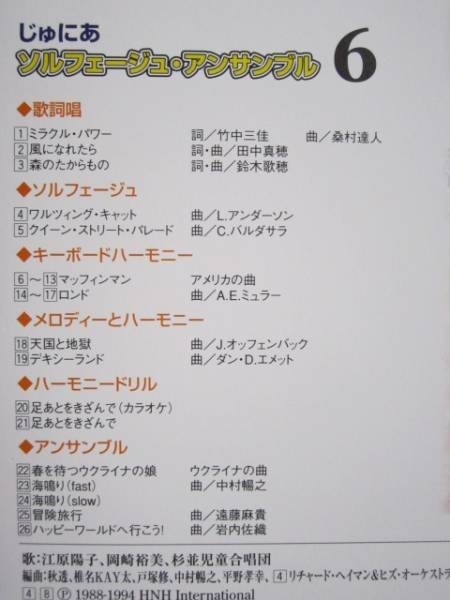 じゅにあ
ソルフェージュ・アンサンブル 6
◆歌詞唱
1 ミラクル・パワー 詞／竹中三佳 曲／桑村達人
2 風になれたら 詞・曲／田中真穂
3 森のたからもの 詞・曲／鈴木歌穂
◆ソルフェージュ
4 ワルツィング・キャット 曲／L.アンダーソン
5 クイーン・ストリート・パレード 曲／C.バルダサラ
◆キーボードハーモニー
6～13 マッフィンマン アメリカの曲
14～17 ロンド 曲／A.E.ミュラー
◆メロディーとハーモニー
18 天国と地獄 曲／J.オッフェンバック
19 デキシーランド 曲／ダン・D.エメット
◆ハーモニードリル
20 足あとをきざんで（カラオケ）
21 足あとをきざんで
◆アンサンブル
22 春を待つウクライナの娘 ウクライナの曲
23 海鳴り（fast） 曲／中村暢之
24 海鳴り（slow）
25 冒険旅行 曲／遠藤麻貴
26 ハッピーワールドへ行こう! 曲／岩内佐織
歌：江原陽子、岡崎裕美、杉並児童合唱団
編曲：秋透、椎名KAY太、戸塚修、中村暢之、平野孝幸、4 リチャード・ヘイマン&ヒズ・オーケストラ
4 8 Ⓟ 1988-1994 HNH International